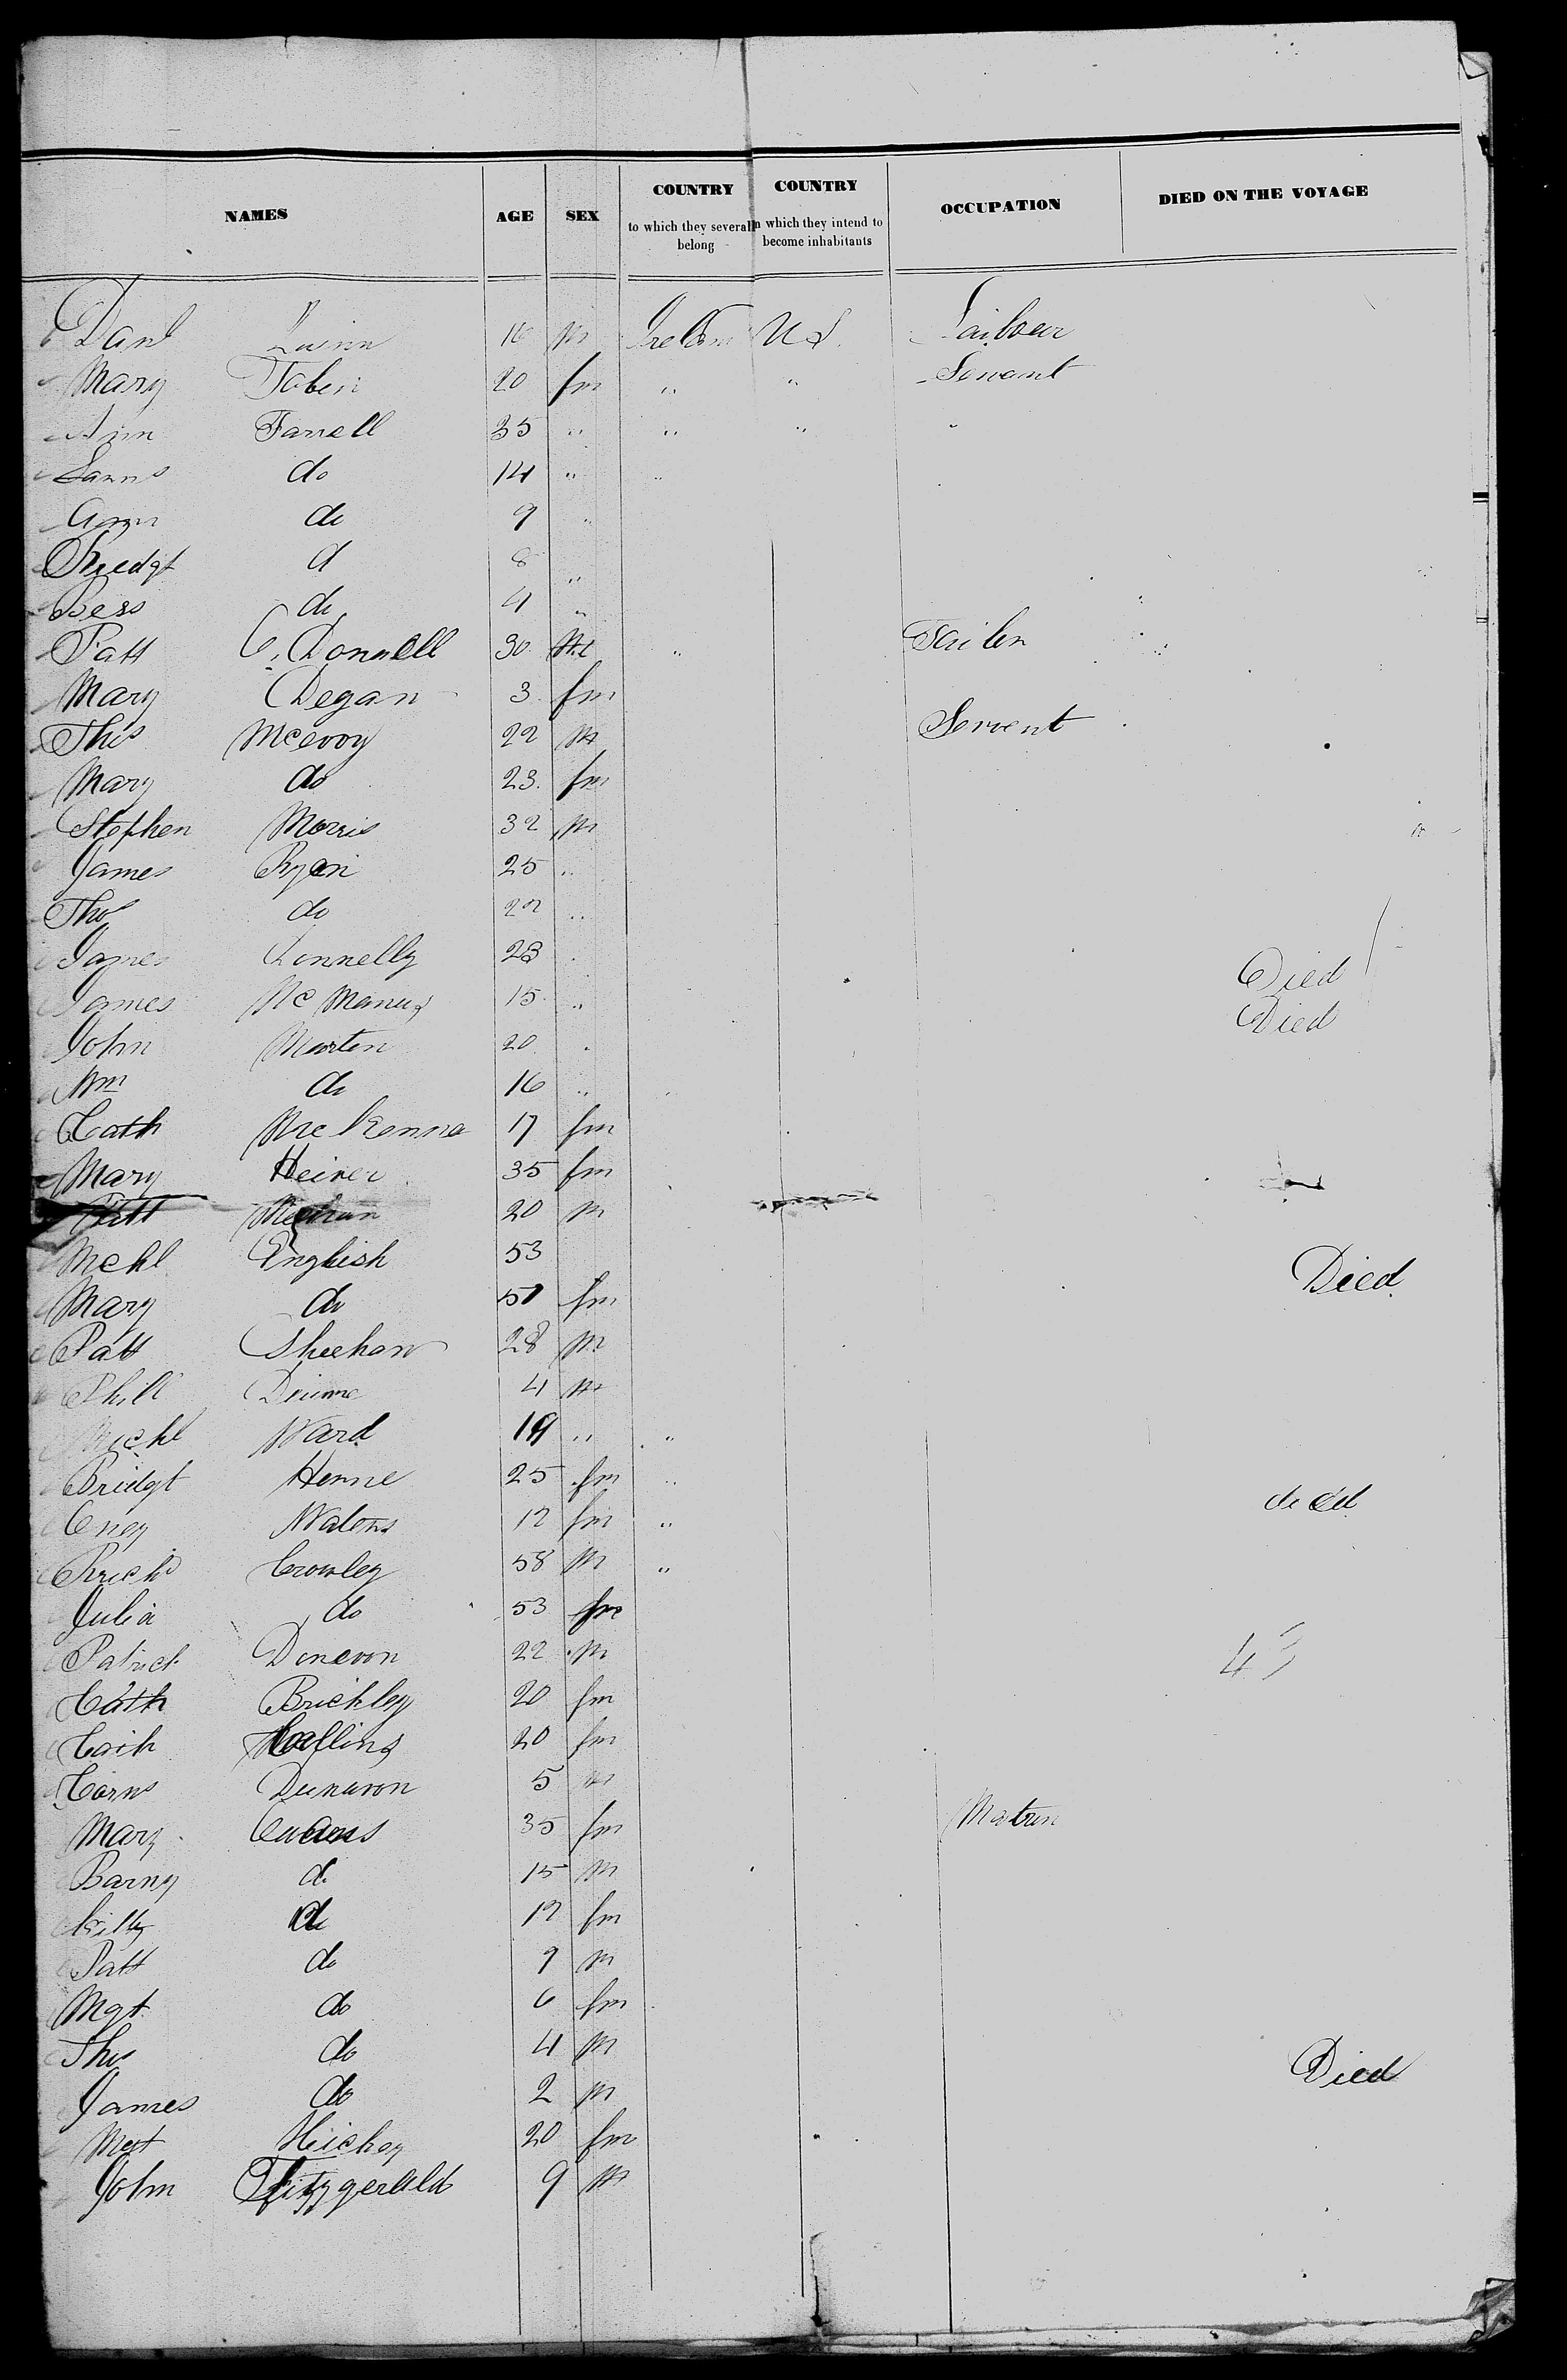 NAMES AGE SEX COUNTRY to which they severall belong COUNTRY n which they intend to become inhabitants OCCUPATION DIED ON THE VOYAGE
Danl Quinn 16 m Ireland US Laibour
Mary Tobin 20 fm " " Servant
Ann Farrell 35 " " " "
do 14 " "
Ann do 9 "
Bridgt d 8 "
Bess do 4 "
Patt O Donnell 30 M " Tailer
Mary Degan 3 fm
Thos Mcevoy 22 M Servent
Mary do 23 fm
Stephen Morris 32 m
James Ryan 25 "
Thos do 22 "
James Connelly 23 Died
James Mc Manus 15 " Died
John Martin 20 "
Wm do 16 "
Cath McKenna 17 fm
Mary 35 fm
Patt 20 m
Mchl English 53 Died
Mary do 51 fm
Patt Sheehan 28 m
Phill 4 m
Michl Ward 19 " "
Bridgt 25 fm "
12 fm " died
Richd Crowley 58 m "
Julia do 53 fm
Patrick Donevon 22 m 43
Cath Brickley 20 fm
Cath Collins 20 fm
Corns Dunavon 5 m
Mary 35 fm Matron
Barny do 15 m
Kitty do 12 fm
Patt do 9 m
Mgt do 6 fm
Thos do 4 m
James do 2 m Died
Mgt Hickey 20 fm
John Fitzgerald 9 m